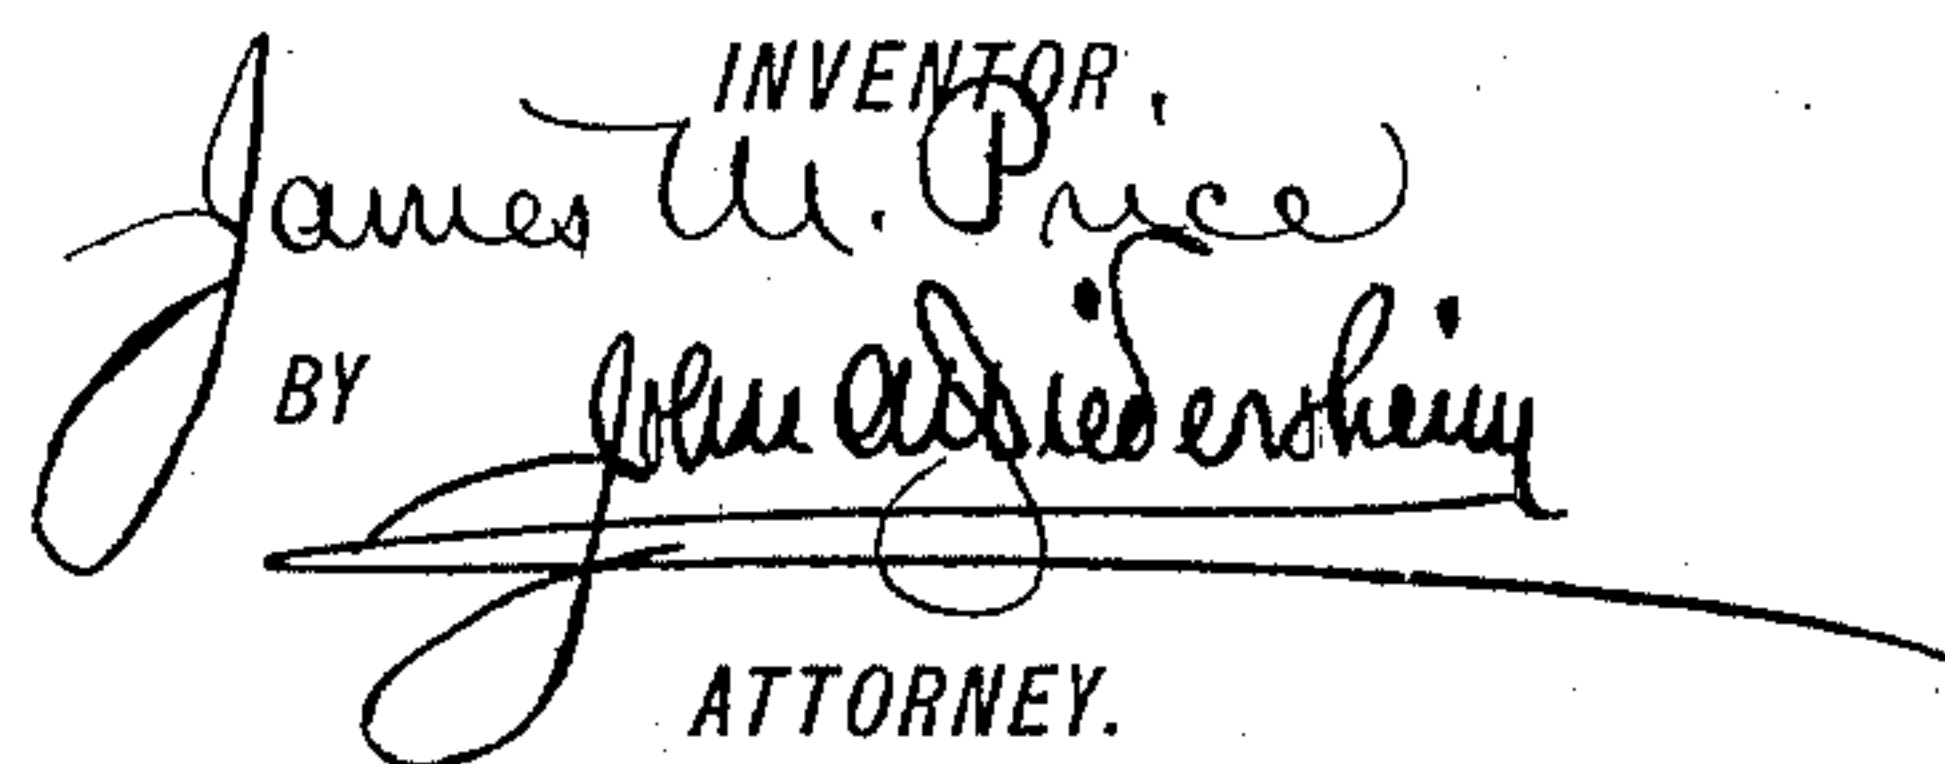 INVENTOR.
James M. Price
BY John A Wiedersheim
ATTORNEY.